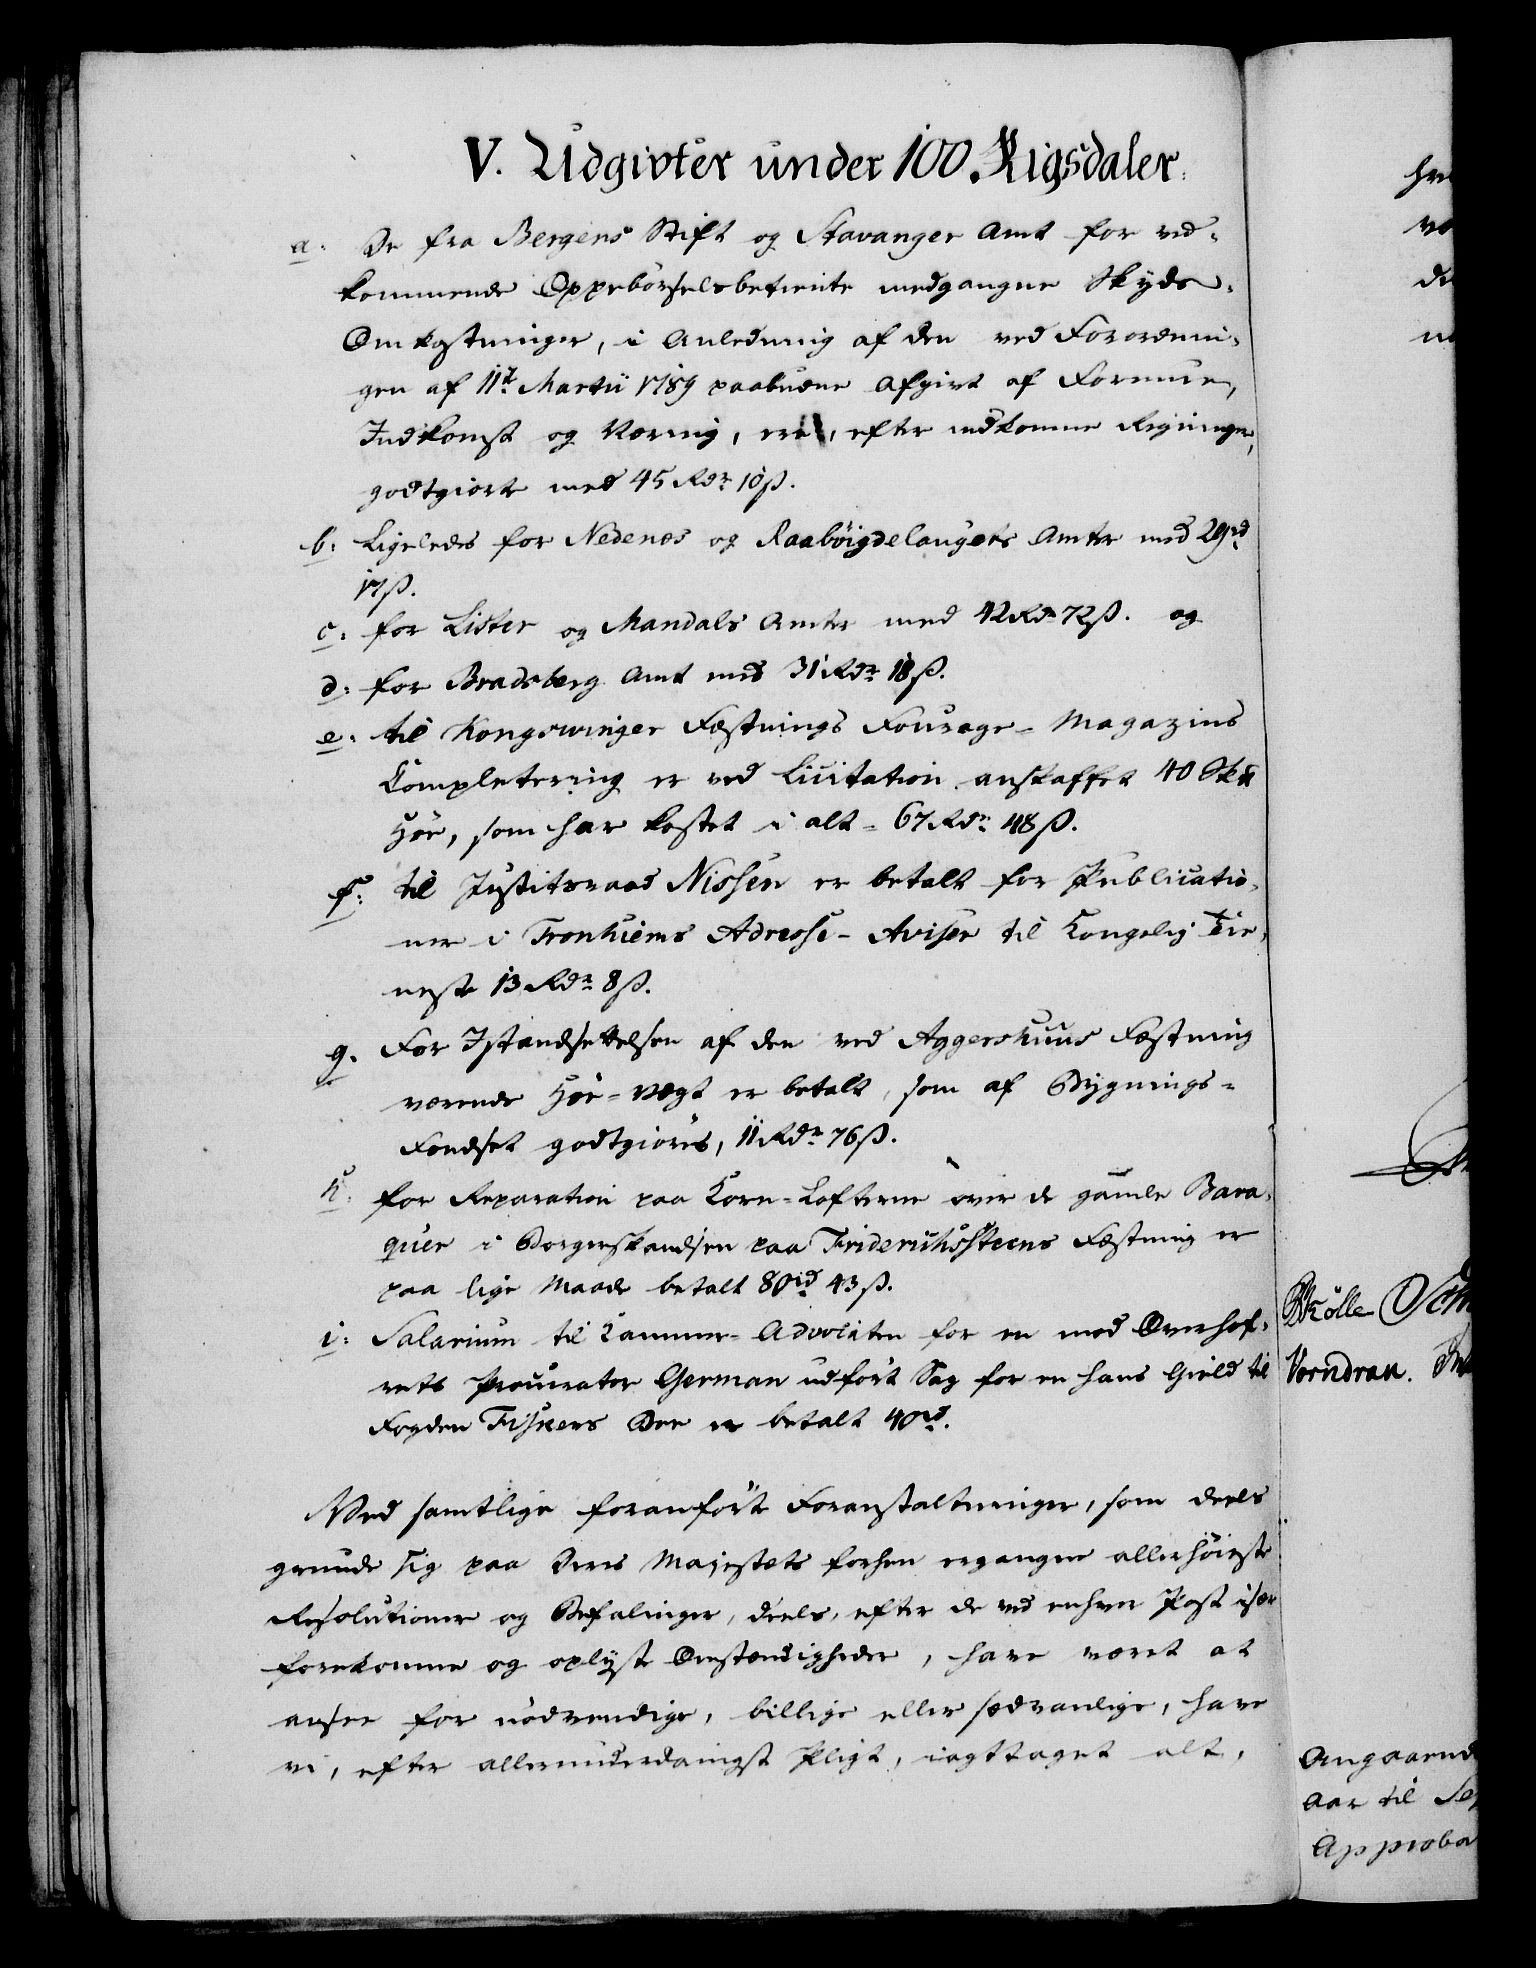 V. Udgivter under 100 Rigsdaler.
a. De fra Bergens Stift og Stavanger Amt for ved-
kommende Oppebörselsbetiente medgangne Skyds-
Omkostninger, i Anledning af den ved Forordnin-
gen af 11te Martii 1789 paabudne Afgivt af Formue,
Indkomst og Næring, ere, efter indkomne Regninger,
godtgiorte med 45 Rdr 10 ß.
b: Ligeledes for Nedenes og Raaböigdelaugets Amter med 29rd
17 ß.
c: for Lister og Mandals Amter med 42 Rdr 72 ß. og
d: for Bradsberg Amt med 31 Rdr 18 ß.
e: til Kongswinger Fæstnings Fourage-Magazins
Completering er ved Licitation anskaffet 40 Sk℔
Höe, som har kostet i alt - 67 Rdr 48 ß.
f: til Justitsraad Nissen er betalt for Publicatio-
ner i Tronhiems Adresse-Aviser til Kongelig Tie-
neste 13 Rdr 8 ß.
g. For Istandsettelsen af den ved Aggershuus Fæstning
værende Höe-Vægt er betalt, som af Bygnings-
Fondset godtgiöres, 11 Rdr 76 ß.
h. for Reparation paa Korn-Lofterne over de gamle Bara-
quer i Borgerskandsen paa Friderichssteens Fæstning er
paa lige Maade betalt 80rd 43 ß.
i: Salarium til Kammer-Advocaten for en mod Overhof-
rets Procurator German udfört Sag for en hans Gield til
Fogden Fiskers Boe er betalt 40rd.
Ved samtlige foranförte Foranstaltninger, som deels
grunde sig paa Deres Majestæts forhen ergangne allerhöieste
Resolutioner og Befalinger, deels, efter de ved enhver Post især
forekomne og oplyste Omstændigheder, have været at
ansee for nödvendige, billige eller sædvanlige, have
vi, efter allerunderdanigst Pligt, iagttaget alt,
Skölle
Vorndran.
Angaaend
Aar til
Approba